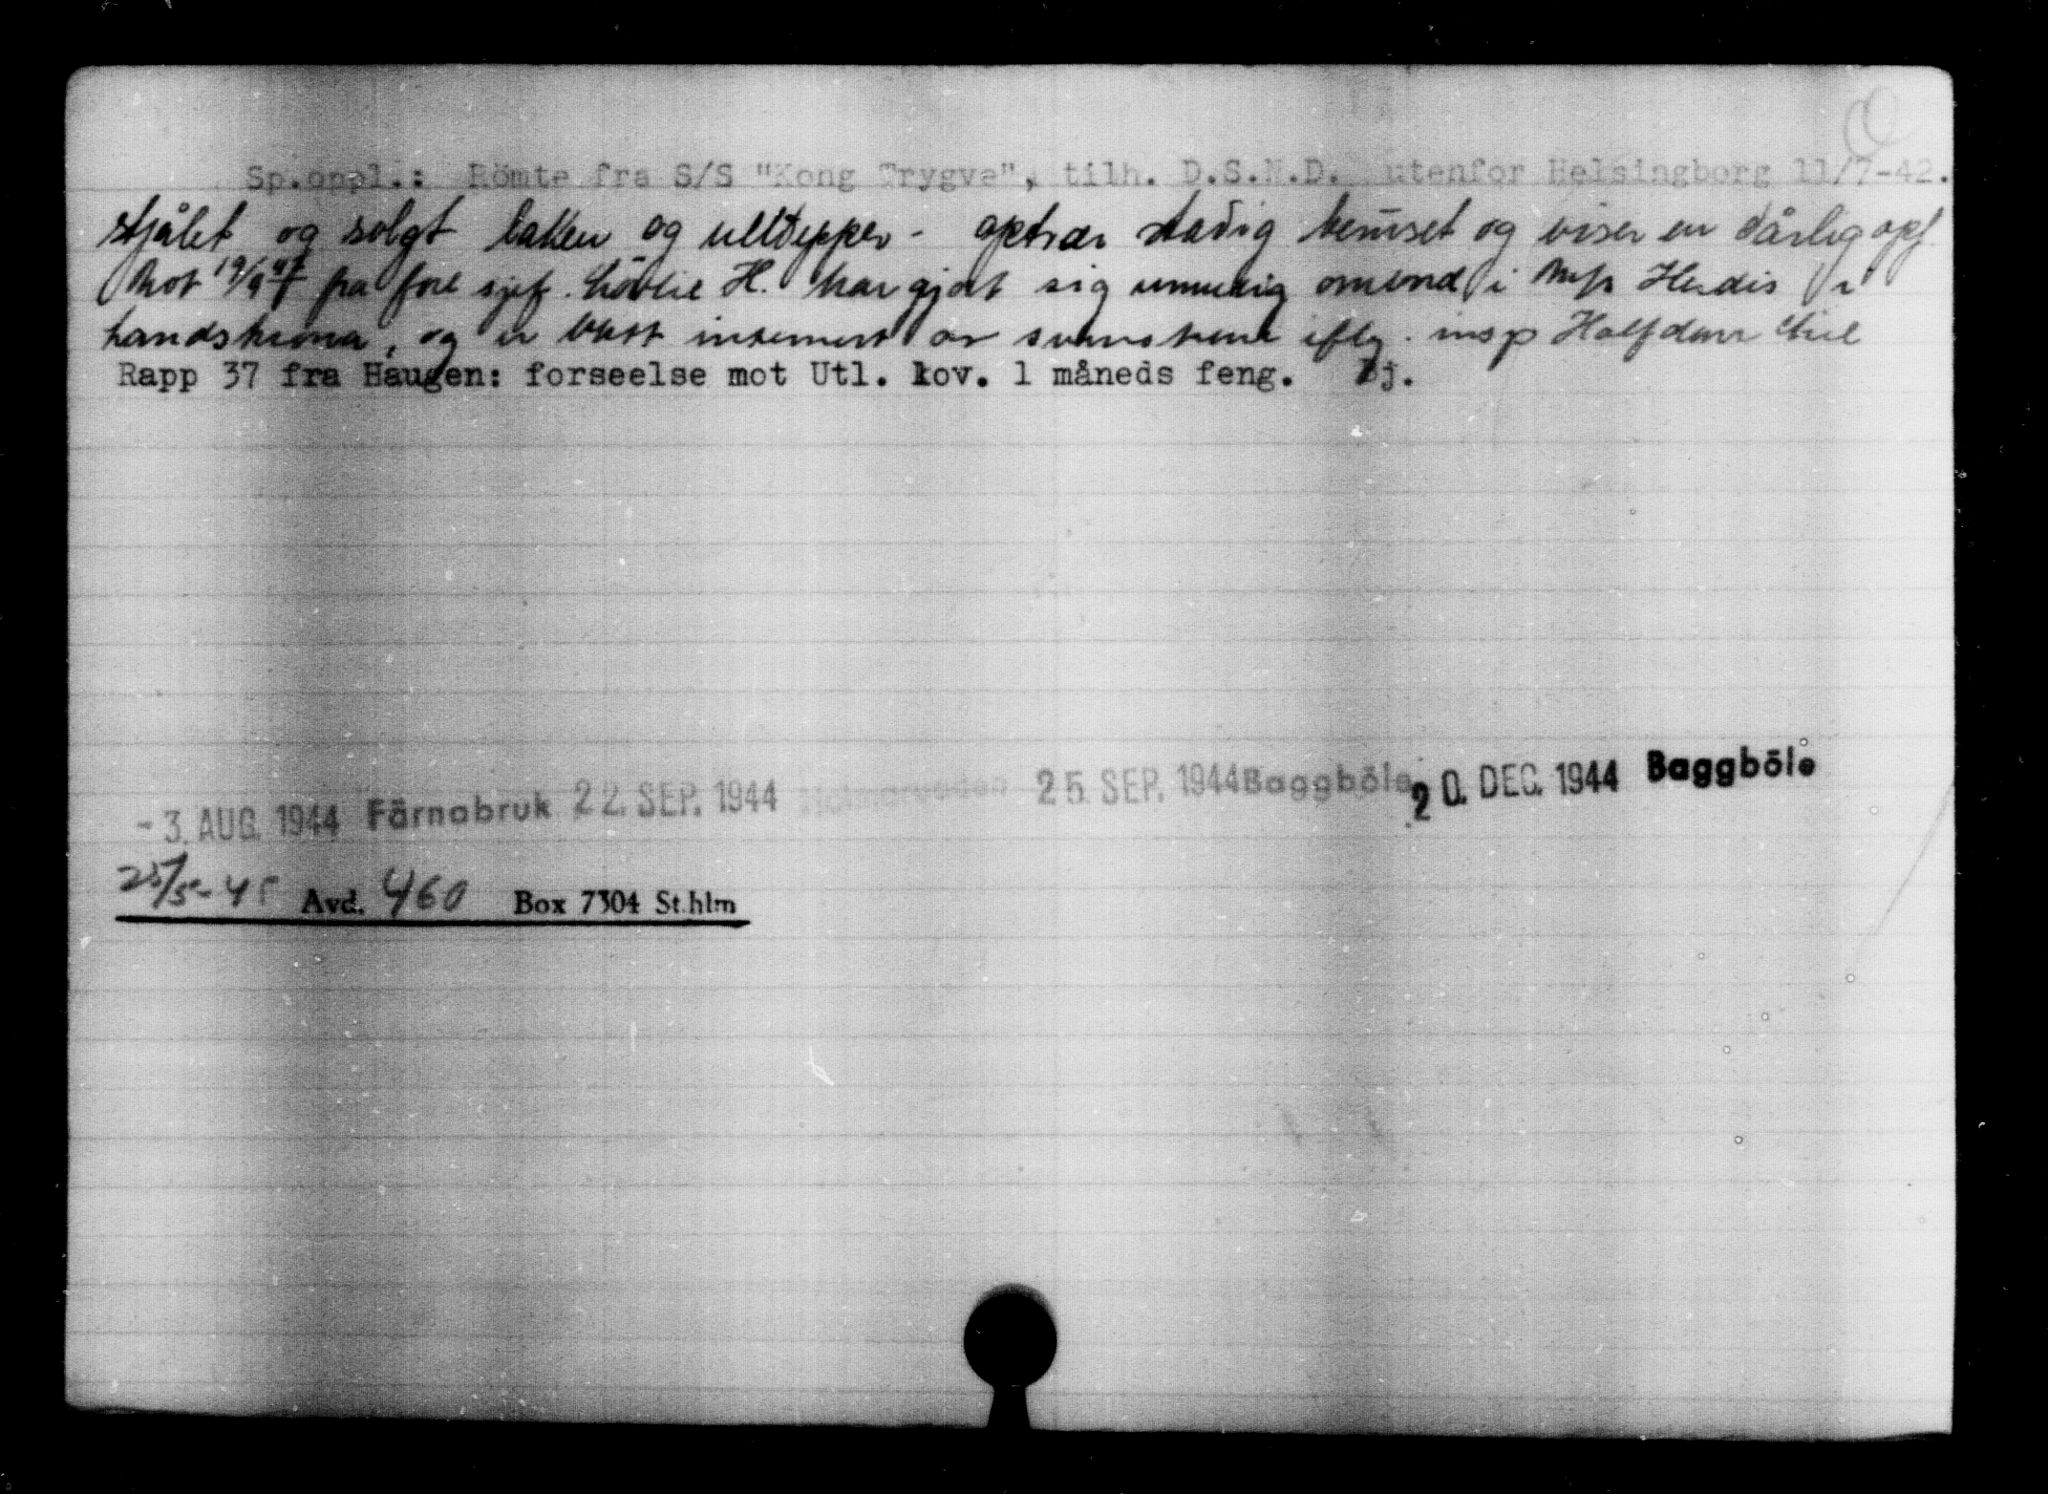 Sp.oppl.: Römte fra S/S "Kong Trygve", tilh. D.S.N.D. utenfor Helsingborg 11/7-42.
stjålet og solgt laken og ulltepper - optrær stadig beruset og viser en dårlig opf.
Not 19/9 fra forl sjef. H. har gjort sig umulig ombord i M/s Herdis i
Landskrona, og er blitt internert av svenskene iflg. insp Halfdan
Rapp 37 fra Haugen: forseelse mot Utl. lov. 1 måneds feng. Bj.
- 3. AUG. 1944 Färnabruk 22. SEP. 1944 25. SEP. 1944 Baggböle 20. DEC. 1944 Baggböle
25/5-45 Avd. 460 Box 7304 St.hlm